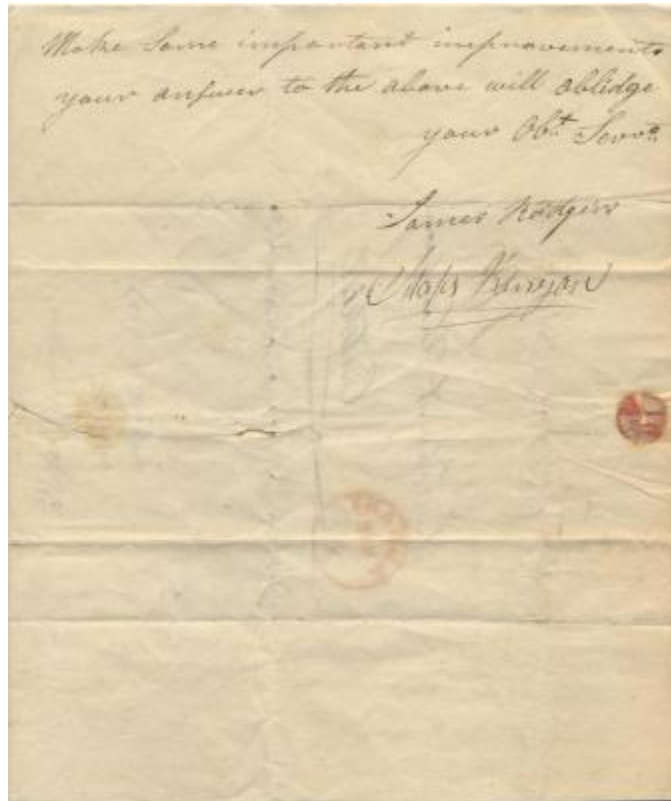 Make Some important improvements
your answer to the above will oblidge
your Obt Servts
James Rodgers
Kenyon